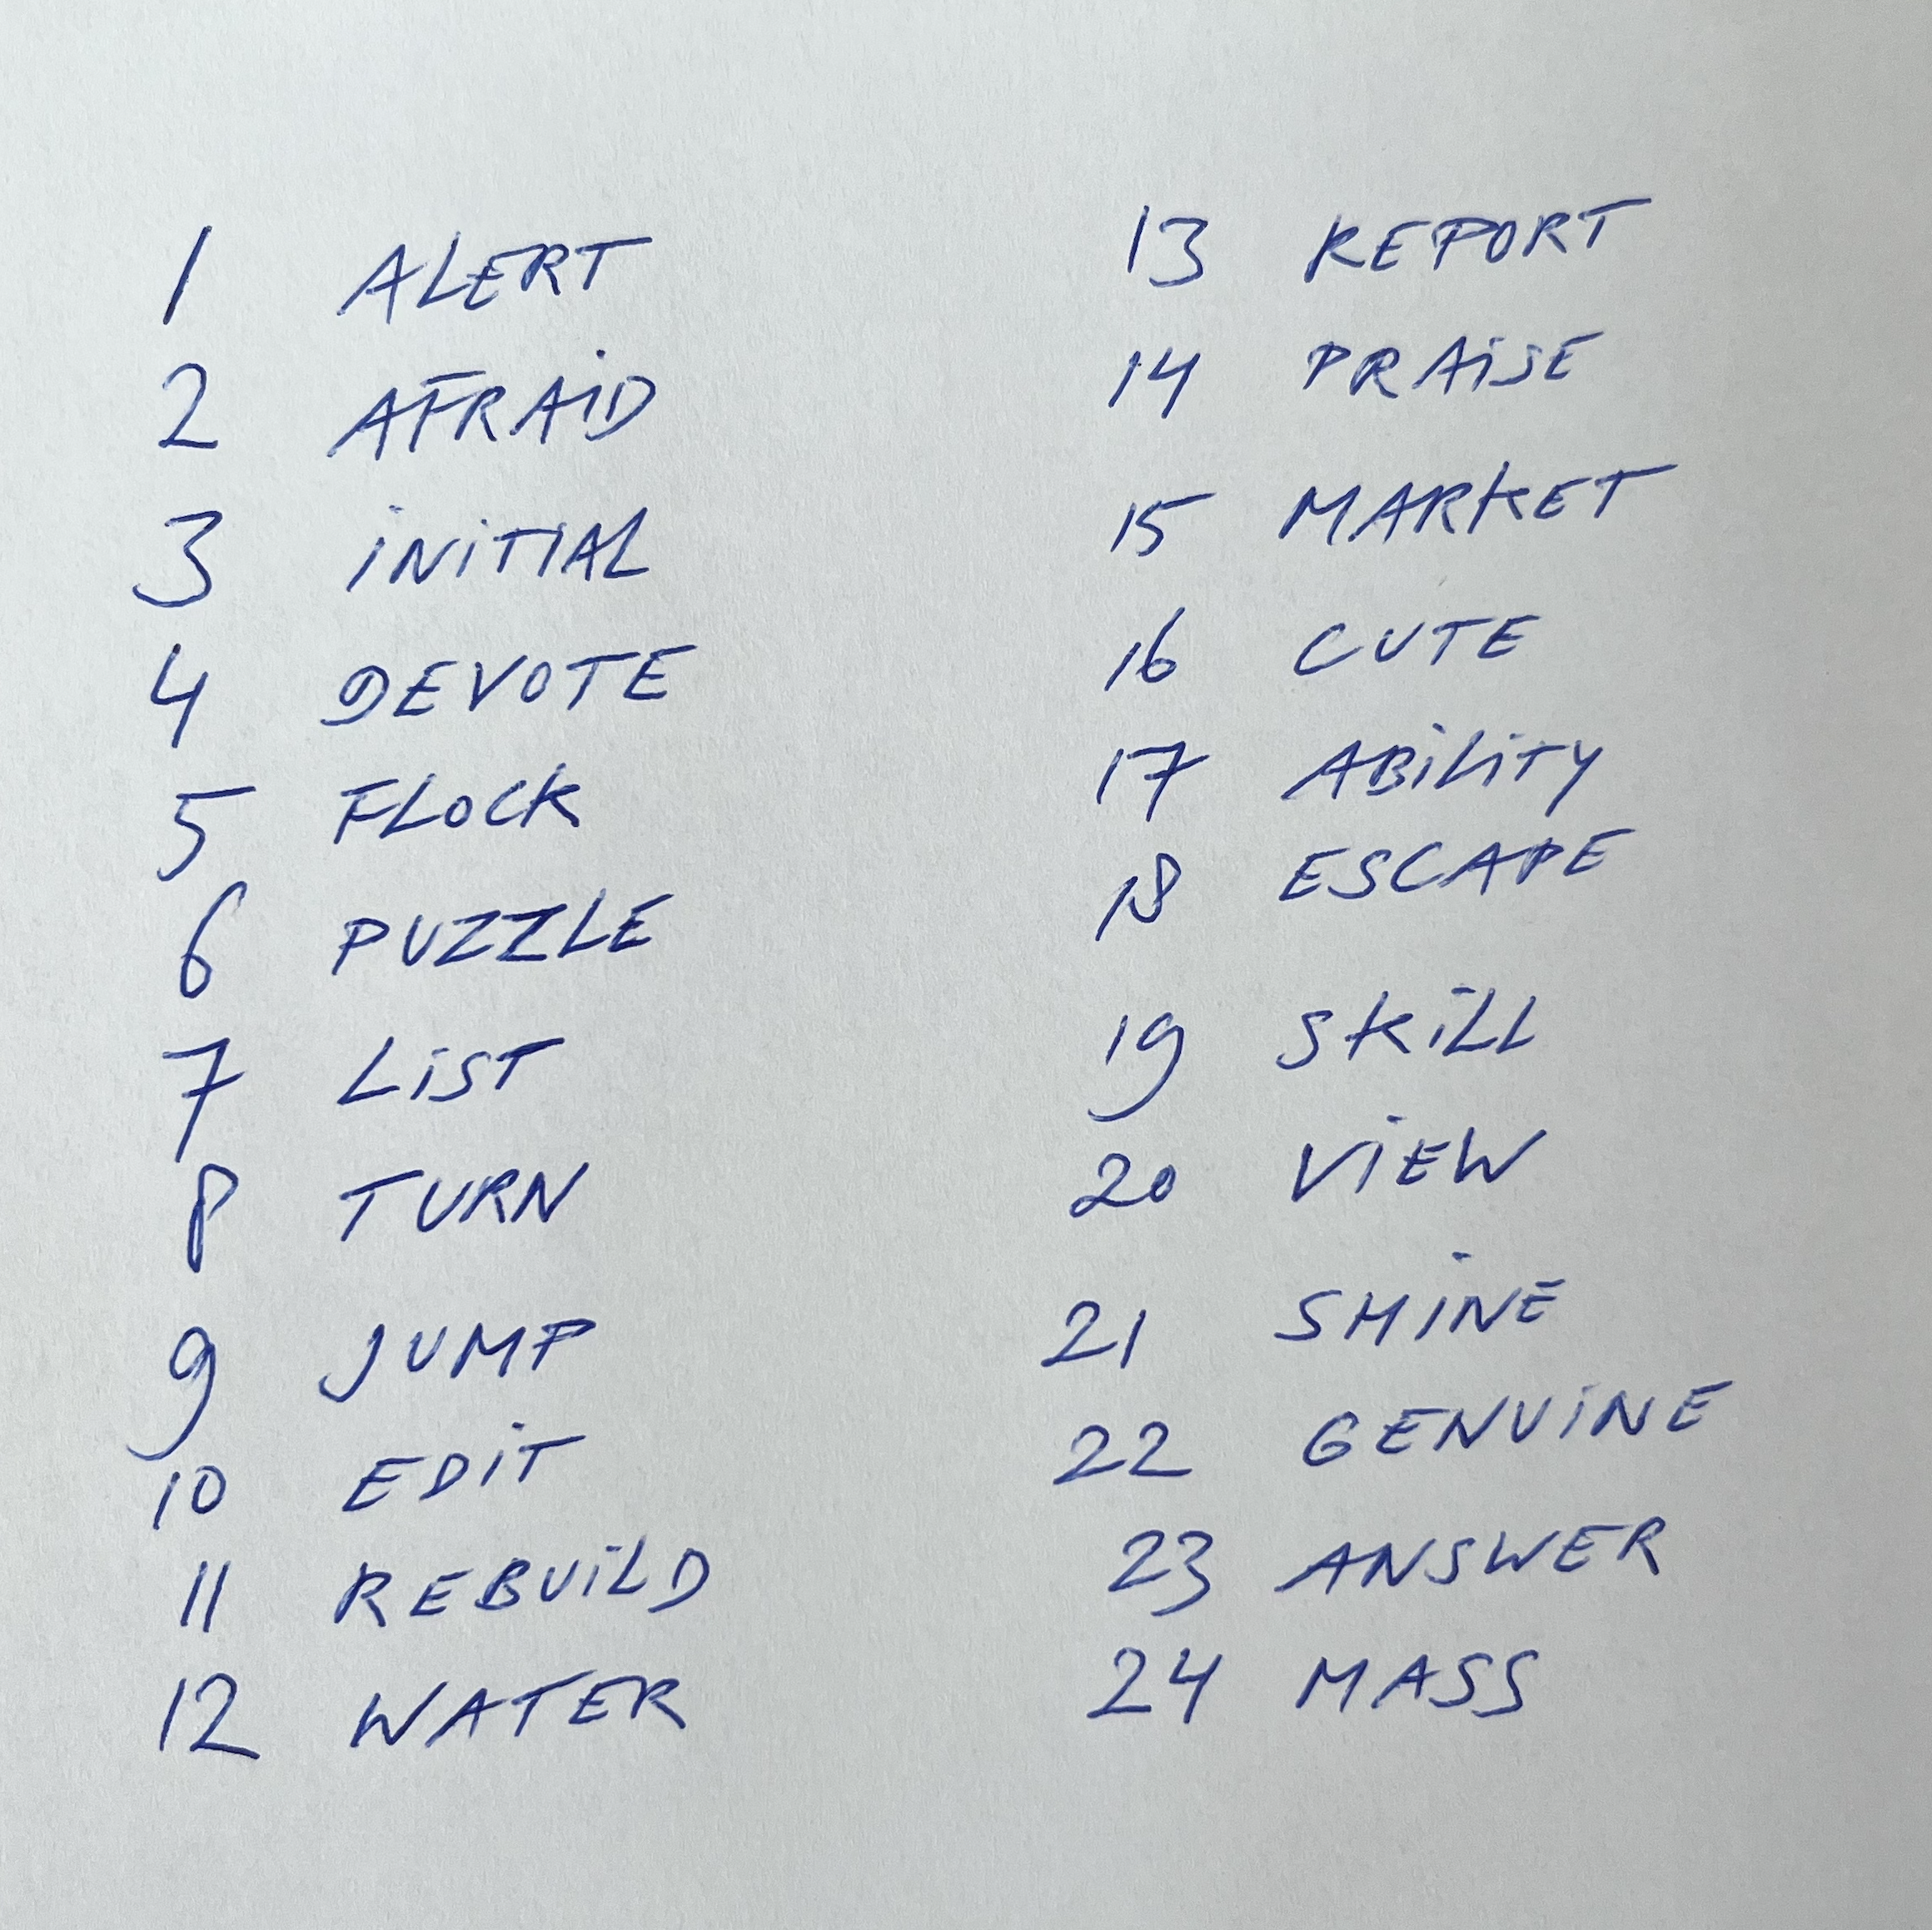 1 ALERT
2 AFRAiD
3 iNiTIAL
4 DEVOTE
5 FLOCK
6 PUZZLE
7 LiST
8 TURN
9 JUMP
10 EDiT
11 REBUiLD
12 WATER
13 REPORT
14 PRAiSE
15 MARKET
16 CUTE
17 ABiLiTY
18 ESCAPE
19 SKiLL
20 ViEW
21 SHiNE
22 GENUiNE
23 ANSWER
24 MASS